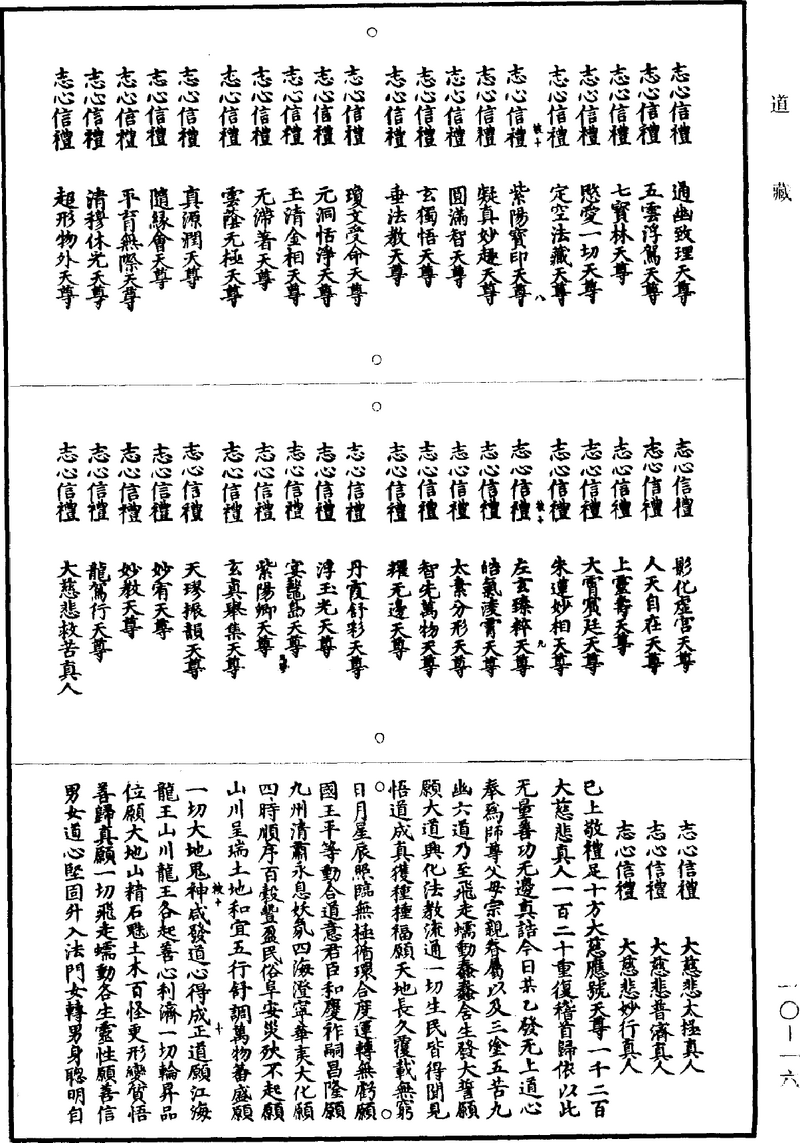 道藏
志心信禮　通幽致理天尊
志心信禮　五雲浮駕天尊
志心信禮　七寶林天尊
志心信禮　愍愛一切天尊
志心信禮　定空法藏天尊
志心信禮　紫陽寶印天尊
志心信禮　凝真妙趣天尊
志心信禮　圓滿智天尊
志心信禮　玄獨悟天尊
志心信禮　垂法教天尊
志心信禮　瓊文受命天尊
志心信禮　元洞恬淨天尊
志心信禮　玉清金相天尊
志心信禮　无滯著天尊
志心信禮　雲蔭无極天尊
志心信禮　真源潤天尊
志心信禮　隨緣會天尊
志心信禮　平育無際天尊
志心信禮　清穆休光天尊
志心信禮　超形物外天尊
志心信禮　影化虛宮天尊
志心信禮　人天自在天尊
志心信禮　上靈壽天尊
志心信禮　大霄賓廷天尊
志心信禮　朱連妙相天尊
志心信禮　左玄臻粹天尊
志心信禮　皓氣淩霄天尊
志心信禮　太素分形天尊
志心信禮　智先萬物天尊
志心信禮　耀无邊天尊
志心信禮　丹霞舒彩天尊
志心信禮　浮玉光天尊
志心信禮　天尊
志心信禮　紫陽卿天尊
志心信禮　玄真興集天尊
志心信禮　天璆振韻天尊
志心信禮　妙宥天尊
志心信禮　妙教天尊
志心信禮　龍駕行天尊
志心信禮　大慈悲救苦真人
志心信禮　大慈悲太極真人
志心信禮　大慈悲普濟真人
志心信禮　大慈悲妙行真人
已上敬禮足十方大慈應號天尊一千二百
大慈悲真人一百二十重復稽首歸依以此
无量善功无邊真誥今日共乙發无上道心
奉為師尊父母宗親眷屬以及三塗五苦九
幽六道乃至飛走蠕動蠢蠢含生發大誓願
願大道興化法教流通一切生民皆得聞見
悟道成真獲種種福願天地長久覆載無窮
日月星辰照臨無極循環合度運轉無虧願
國王平等動合道意君臣和慶祚嗣昌隆願
九州清肅永息妖氛四海澄寧華夷大化願
四時順序百穀豐盈民俗阜安災殃不起願
山川呈瑞土地和宜五行舒調萬物蕃盛願
一切大地鬼神咸發道心得成正道願江海
龍王山川龍王各起善心利濟一切輪昇品
位願大地山精石魅土木百怪更形變質悟
善歸真願一切飛走蠕動各生靈性願善信
男女道心堅固升入法門女轉男身聰明自
一〇—一六